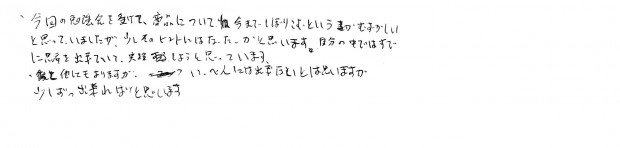 ・今回の勉強会を受けて、商品について 今まで しぼりこむという事がむずかしい
と思っていましたが、少しそのヒントにはなったかと思います。自分の中ではすでに
に思考を出来ていて、実践しようと思っています。
・他にもありますが、いっぺんには出来ないとは思いますが
少しずつ出来ればと思います